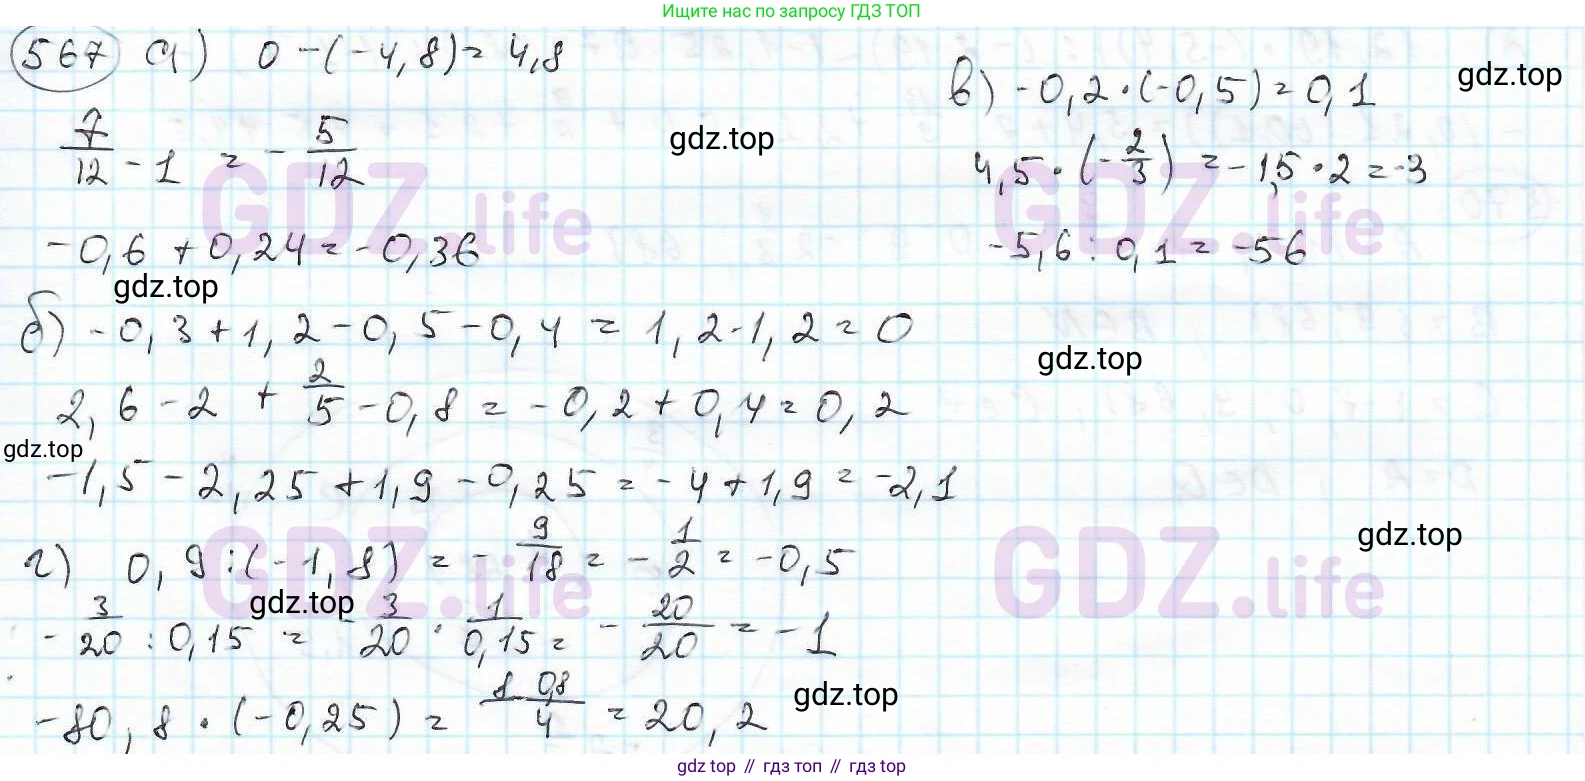 Ищите нас по запросу ГДЗ ТОП
567 а) 0 - (-4,8) = 4,8
7/12 - 1 = - 5/12
-0,6 + 0,24 = -0,36
б) -0,3 + 1,2 - 0,5 - 0,4 = 1,2 - 1,2 = 0
2,6 - 2 + 2/5 - 0,8 = -0,2 + 0,4 = 0,2
-1,5 - 2,25 + 1,9 - 0,25 = -4 + 1,9 = -2,1
в) -0,2 · (-0,5) = 0,1
4,5 · (-2/3) = -1,5 · 2 = -3
-5,6 : 0,1 = -56
г) 0,9 : (-1,8) = - 9/18 = - 1/2 = -0,5
- 3/20 : 0,15 = - 3/20 · 1/0,15 = - 20/20 = -1
-80,8 · (-0,25) = 80,8/4 = 20,2
gdz.top
gdz.top
gdz.top
gdz.top
gdz.top
gdz.top
gdz.top
gdz.top
GDZ.life
GDZ.life
GDZ.life
GDZ.life
gdz top // гдз топ // гдз top